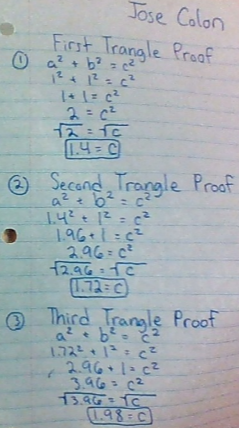 Jose Colon
First Trangle Proof
① a² + b² = c²
1² + 1² = c²
1 + 1 = c²
2 = c²
√2 = √c
1.4 = c
② Second Trangle Proof
a² + b² = c²
1.4² + 1² = c²
1.96 + 1 = c²
2.96 = c²
√2.96 = √c
1.72 = c
③ Third Trangle Proof
a² + b² = c²
1.72² + 1² = c²
2.96 + 1 = c²
3.96 = c²
√3.96 = √c
1.98 = c